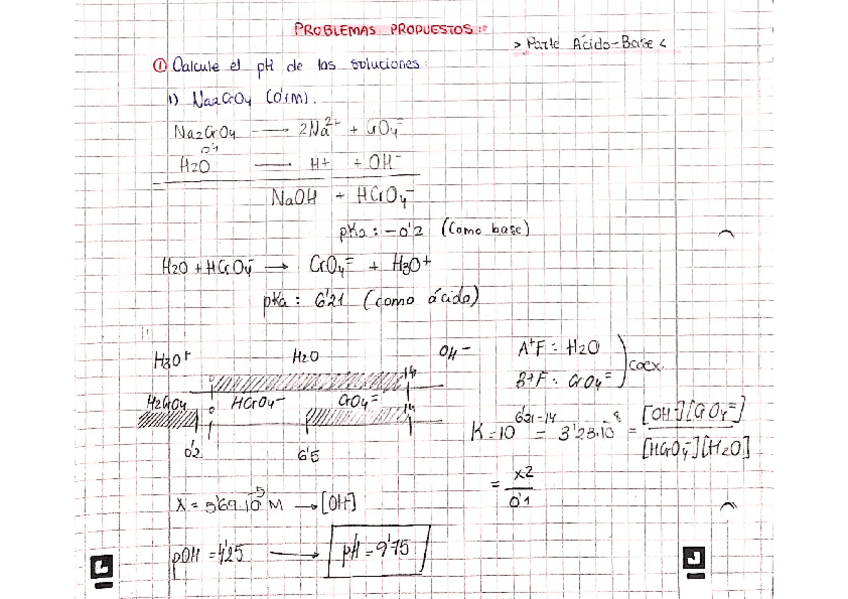 PROBLEMAS PROPUESTOS:
> Parte Ácido-Base <
① Calcule el pH de las soluciones:
1) Na2CrO4 (0'1M).
Na2CrO4 → 2Na2+ + CrO4=
0'1
H2O → H+ + OH-
NaOH + HCrO4-
pKa: -0'2 (como base)
H2O + HCrO4- → CrO4= + H3O+
pKa: 6'21 (como ácido)
H3O+ H2O OH-
14
0
H2CrO4 HCrO4- CrO4=
14
0'2 6'5
A+F: H2O
B+F: CrO4= coex.
K = 10^6'21-14 = 3'23·10^-8 = [OH-][CrO4=]
[HCrO4-][H2O]
= x2
0'1
X = 5'69·10^-5 M → [OH-]
pOH = 4'25 → pH = 9'75